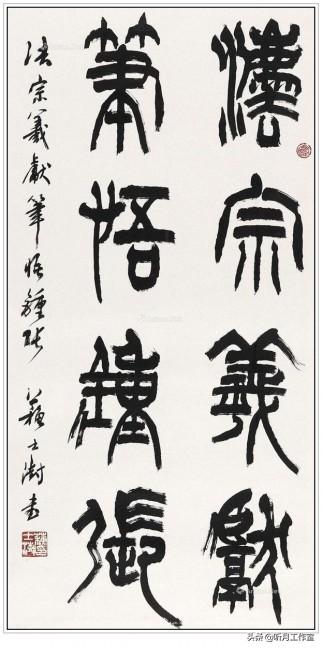 灋宗羲獻
筆悟鍾張
法宗羲獻筆悟鍾張 蘇士澍書
头条 @听月工作室